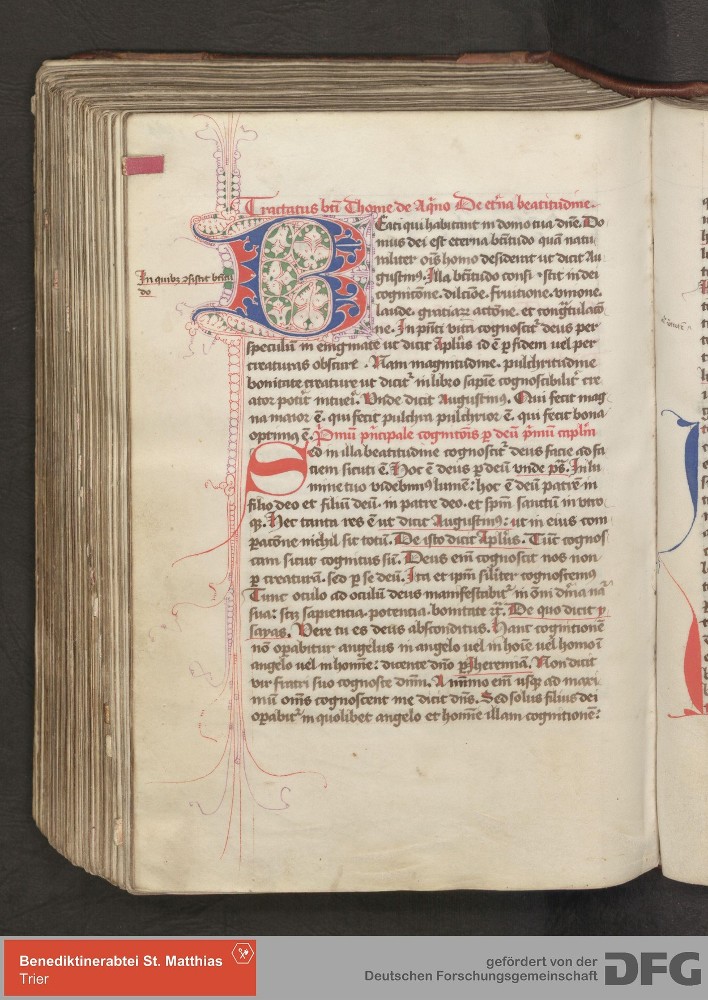 Tractatus bti Thome de Aq̃no De et̃na beatitudine.
Beati qui habitant in domo tua dñe. Do
mus dei est eterna btĩtudo quã natu
raliter oĩs homo desiderat ut dicit Au
gustinꝰ. Illa btĩtudo consistit in dei
cognitõne. dilcõne. fruitione. vnione.
laude. gratiaꝝ actõne. et congtulacõ
ne. In pñti vita cognoscit deus per
speculũ in enigmate ut dicit Aplũs id ẽ ꝑ fidem uel per
creaturas obscure. Nam magnitudine. pulchritudine
bonitate creature ut dicit in libro sapiẽ cognoscibilit cre
ator potit intueri. Vnde dicit Augustinꝰ. Qui fecit mag
na maior ẽ. qui fecit pulchra pulchrior ẽ. qui fecit bona
optimꝰ ẽ. Pmũ pncipale cognitõis ꝑ deũ pmũ capłm
Sed in illa beatitudine cognoscit deus facie ad fa
ciem sicuti ẽ. Hoc ẽ deus ꝑ deũ vnde pš. In lu
mine tuo videbimꝰ lumẽ: hoc ẽ deũ patrẽ in
filio deo et filiũ deũ. in patre deo. et spm̃ sanctũ in vtro
qꝫ. Hec tanta res ẽ ut dicit Augustinꝰ: ut in eius com
paratõne nichil sit totũ. De isto dicit Aplũs. Tũc cognos
cam sicut cognitus sũ. Deus em̃ cognoscit nos non
ꝑ creaturã. sed ꝑ se deũ. Ita et ipm̃ silĩter cognoscemꝰ
Tunc oculo ad oculũ deus manifestabit in om̃i dñia na
sua: scꝫ sapiencia. potencia. bonitate ⁊c. De quo dicit y
sayas. Vere tu es deus absconditus. Hanc cognitionẽ
nõ oꝑabitur angelus in angelo vel in hoĩe vel homo ĩ
angelo uel in homine: dicente dño ꝑ Iheremiã. Non dicit
vir fratri suo cognosce dñm. A mĩmo em̃ usqꝫ ad maxi
mũ oms̃ cognoscent me dicit dñs. Sed solus filius dei
oꝑabit in quolibet angelo et homine illam cognitionẽ:
In quibꝫ ꝯsistat btĩtu
do
Benediktinerabtei St. Matthias
Trier
gefördert von der
Deutschen Forschungsgemeinschaft
DFG